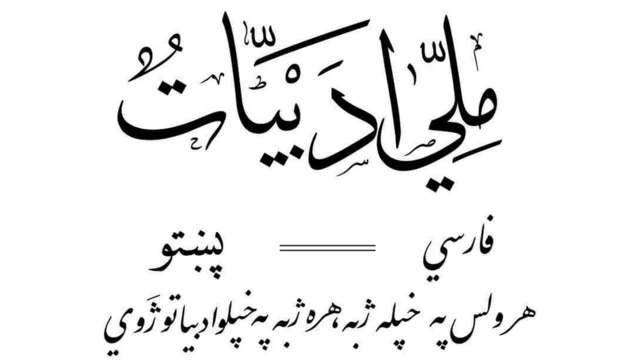 مِلّي ادَبْيّاتُ
فارسي پښتو
هر ولس په خپله ژبه، هره ژبه په خپلو ادبیاتو ژَوي